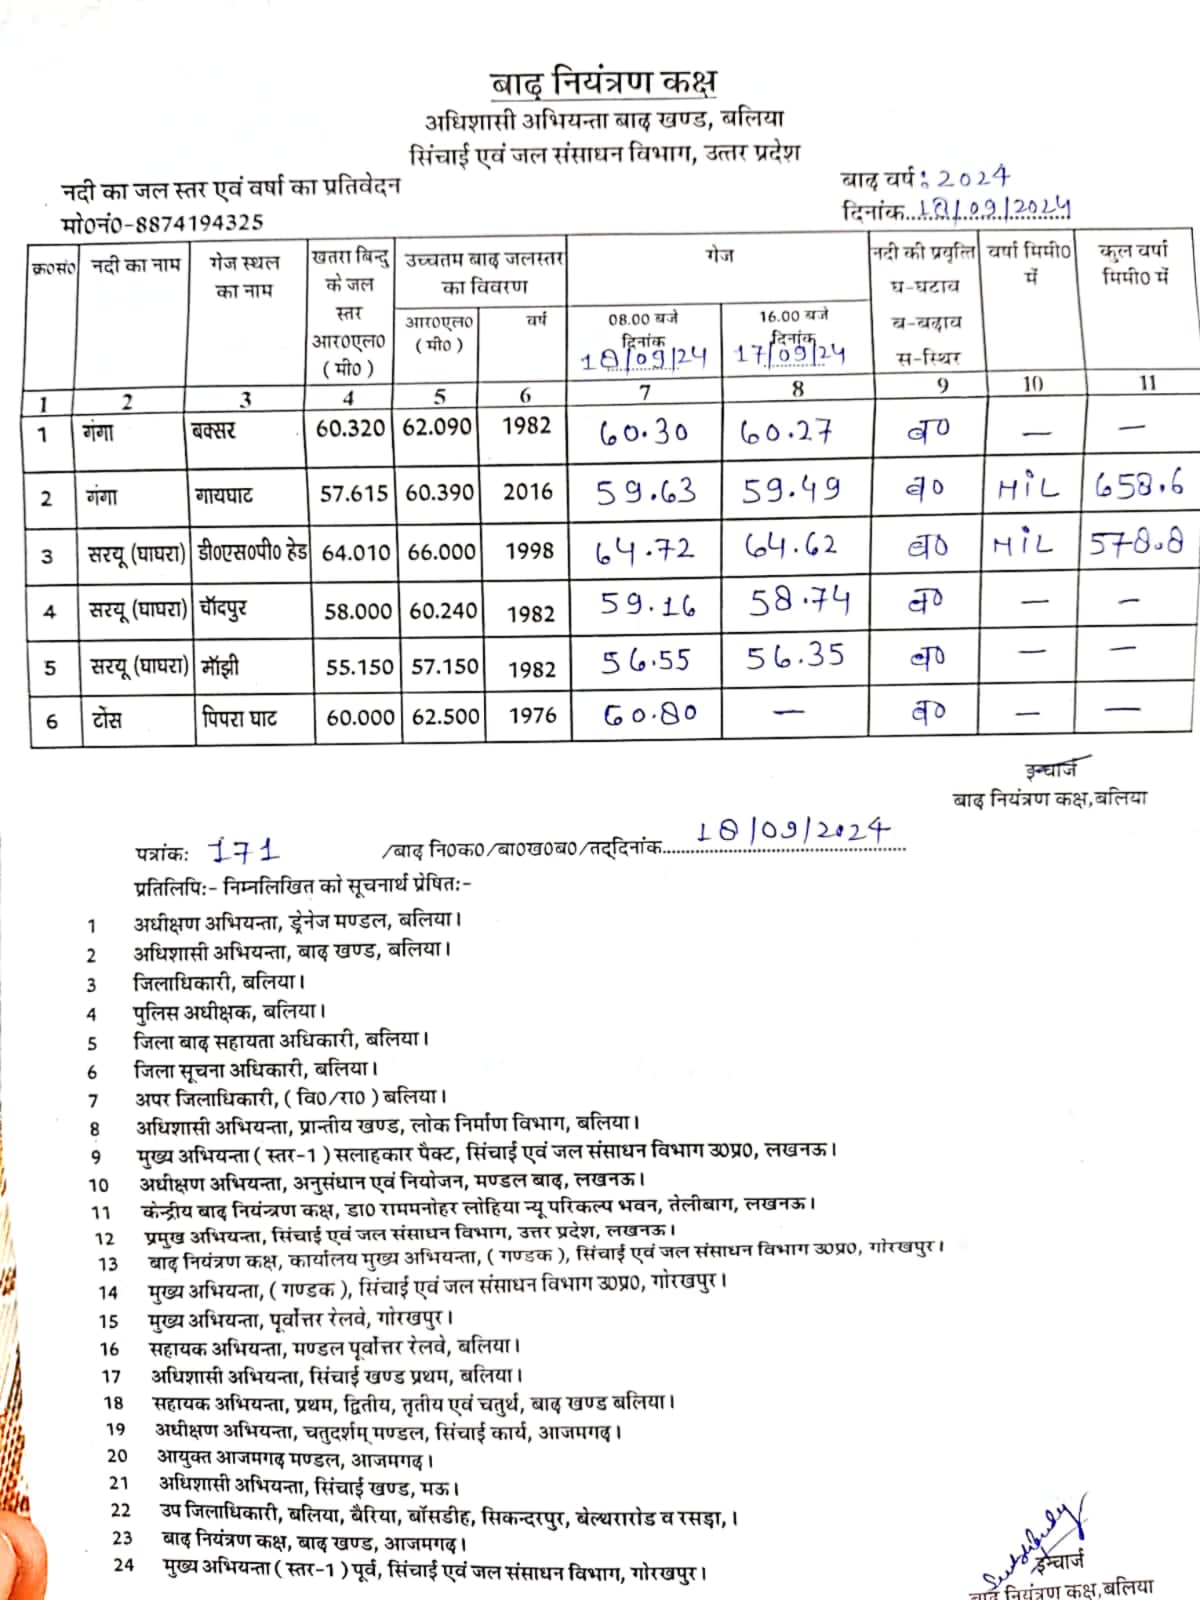 बाढ़ नियंत्रण कक्ष
अधिशासी अभियन्ता बाढ़ खण्ड, बलिया
सिंचाई एवं जल संसाधन विभाग, उत्तर प्रदेश
नदी का जल स्तर एवं वर्षा का प्रतिवेदन
बाढ़ वर्ष: 2024
मो0नं0-8874194325
दिनांक..18/09/2024
क्र0सं0 नदी का नाम गेज स्थल का नाम खतरा बिन्दु के जल स्तर आर0एल0 (मी0) उच्चतम बाढ़ जलस्तर का विवरण गेज नदी की प्रवृत्ति घ-घटाव ब-बढ़ाव स-स्थिर वर्षा मिमी0 में कुल वर्षा मिमी0 में
आर0एल0 (मी0) वर्ष 08.00 बजे दिनांक 18/09/24 16.00 बजे दिनांक 17/09/24
1 2 3 4 5 6 7 8 9 10 11
1 गंगा बक्सर 60.320 62.090 1982 60.30 60.27 ब0 — —
2 गंगा गायघाट 57.615 60.390 2016 59.63 59.49 ब0 NIL 658.6
3 सरयू (घाघरा) डी0एस0पी0 हेड 64.010 66.000 1998 64.72 64.62 ब0 NIL 578.8
4 सरयू (घाघरा) चॉदपुर 58.000 60.240 1982 59.16 58.74 ब0 — —
5 सरयू (घाघरा) मॉझी 55.150 57.150 1982 56.55 56.35 ब0 — —
6 टोंस पिपरा घाट 60.000 62.500 1976 60.80 — ब0 — —
इन्चार्ज
बाढ़ नियंत्रण कक्ष,बलिया
पत्रांक: 171 /बाढ़ नि0क0/बा0ख0ब0/तद्दिनांक....18/09/2024
प्रतिलिपि:- निम्नलिखित को सूचनार्थ प्रेषित:-
1 अधीक्षण अभियन्ता, ड्रेनेज मण्डल, बलिया।
2 अधिशासी अभियन्ता, बाढ़ खण्ड, बलिया।
3 जिलाधिकारी, बलिया।
4 पुलिस अधीक्षक, बलिया।
5 जिला बाढ़ सहायता अधिकारी, बलिया।
6 जिला सूचना अधिकारी, बलिया।
7 अपर जिलाधिकारी, ( वि0/रा0 ) बलिया।
8 अधिशासी अभियन्ता, प्रान्तीय खण्ड, लोक निर्माण विभाग, बलिया।
9 मुख्य अभियन्ता ( स्तर-1 ) सलाहकार पैक्ट, सिंचाई एवं जल संसाधन विभाग उ0प्र0, लखनऊ।
10 अधीक्षण अभियन्ता, अनुसंधान एवं नियोजन, मण्डल बाढ़, लखनऊ।
11 केन्द्रीय बाढ़ नियंन्त्रण कक्ष, डा0 राममनोहर लोहिया न्यू परिकल्प भवन, तेलीबाग, लखनऊ।
12 प्रमुख अभियन्ता, सिंचाई एवं जल संसाधन विभाग, उत्तर प्रदेश, लखनऊ।
13 बाढ़ नियंत्रण कक्ष, कार्यालय मुख्य अभियन्ता, ( गण्डक ), सिंचाई एवं जल संसाधन विभाग उ0प्र0, गोरखपुर।
14 मुख्य अभियन्ता, ( गण्डक ), सिंचाई एवं जल संसाधन विभाग उ0प्र0, गोरखपुर।
15 मुख्य अभियन्ता, पूर्वोत्तर रेलवे, गोरखपुर।
16 सहायक अभियन्ता, मण्डल पूर्वोत्तर रेलवे, बलिया।
17 अधिशासी अभियन्ता, सिंचाई खण्ड प्रथम, बलिया।
18 सहायक अभियन्ता, प्रथम, द्वितीय, तृतीय एवं चतुर्थ, बाढ़ खण्ड बलिया।
19 अधीक्षण अभियन्ता, चतुदर्शम् मण्डल, सिंचाई कार्य, आजमगढ़।
20 आयुक्त आजमगढ़ मण्डल, आजमगढ़।
21 अधिशासी अभियन्ता, सिंचाई खण्ड, मऊ।
22 उप जिलाधिकारी, बलिया, बैरिया, बॉसडीह, सिकन्दरपुर, बेल्थरारोड व रसड़ा,।
23 बाढ़ नियंत्रण कक्ष, बाढ़ खण्ड, आजमगढ़।
24 मुख्य अभियन्ता ( स्तर-1 ) पूर्व, सिंचाई एवं जल संसाधन विभाग, गोरखपुर।
इन्चार्ज
बाढ़ नियंत्रण कक्ष,बलिया